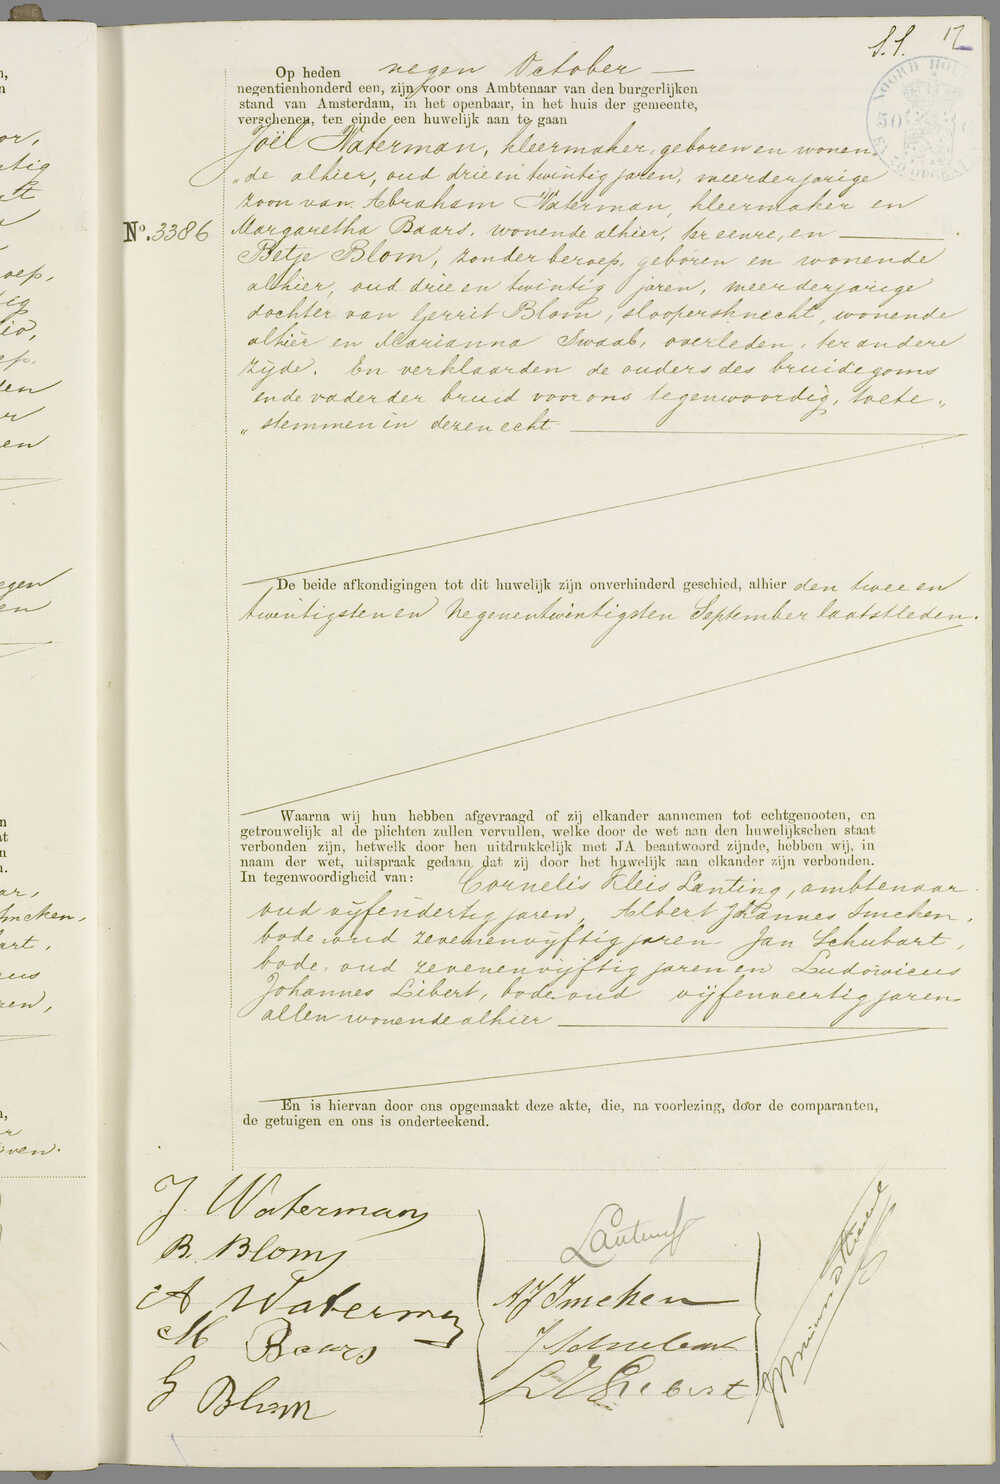 S.S. 12
Op heden negen October —
negentienhonderd een, zijn voor ons Ambtenaar van den burgerlijken
stand van Amsterdam, in het openbaar, in het huis der gemeente,
verschenen, ten einde een huwelijk aan te gaan
Joël Waterman, kleermaker, geboren en wonen-
„de alhier, oud drie en twintig jaren, meerderjarige
zoon van Abraham Waterman, kleermaker en
No. 3386
Margaretha Baars, wonende alhier, ter eenre, en
Betje Blom, zonder beroep, geboren en wonende
alhier, oud drie en twintig jaren, meerderjarige
dochter van Gerrit Blom, sloopersknecht, wonende
alhier en Marianna Swaab, overleden, ter andere
zijde. En verklaarden de ouders des bruidegoms
en de vader der bruid voor ons tegenwoordig, toete„
„stemmen in dezen echt
De beide afkondigingen tot dit huwelijk zijn onverhinderd geschied, alhier den twee en
twintigsten en Negenentwintigsten September laatstleden.
Waarna wij hun hebben afgevraagd of zij elkander aannemen tot echtgenooten, en
getrouwelijk al de plichten zullen vervullen, welke door de wet aan den huwelijkschen staat
verbonden zijn, hetwelk door hen uitdrukkelijk met JA beantwoord zijnde, hebben wij, in
naam der wet, uitspraak gedaan, dat zij door het huwelijk aan elkander zijn verbonden.
In tegenwoordigheid van: Cornelis Kleis Lanting, ambtenaar
oud vijfendertig jaren, Albert Johannes Imeken,
bode oud zevenenvijftig jaren Jan Schubart,
bode, oud zevenenvijftig jaren en Ludovicus
Johannes Libert, bode oud vijfenveertig jaren
allen wonende alhier
En is hiervan door ons opgemaakt deze akte, die, na voorlezing, door de comparanten,
de getuigen en ons is onderteekend.
J. Waterman
B. Blom
A Waterman
M Baars
G Blom
Lanting
AJ Imeken
J Schubart
LJ Libert